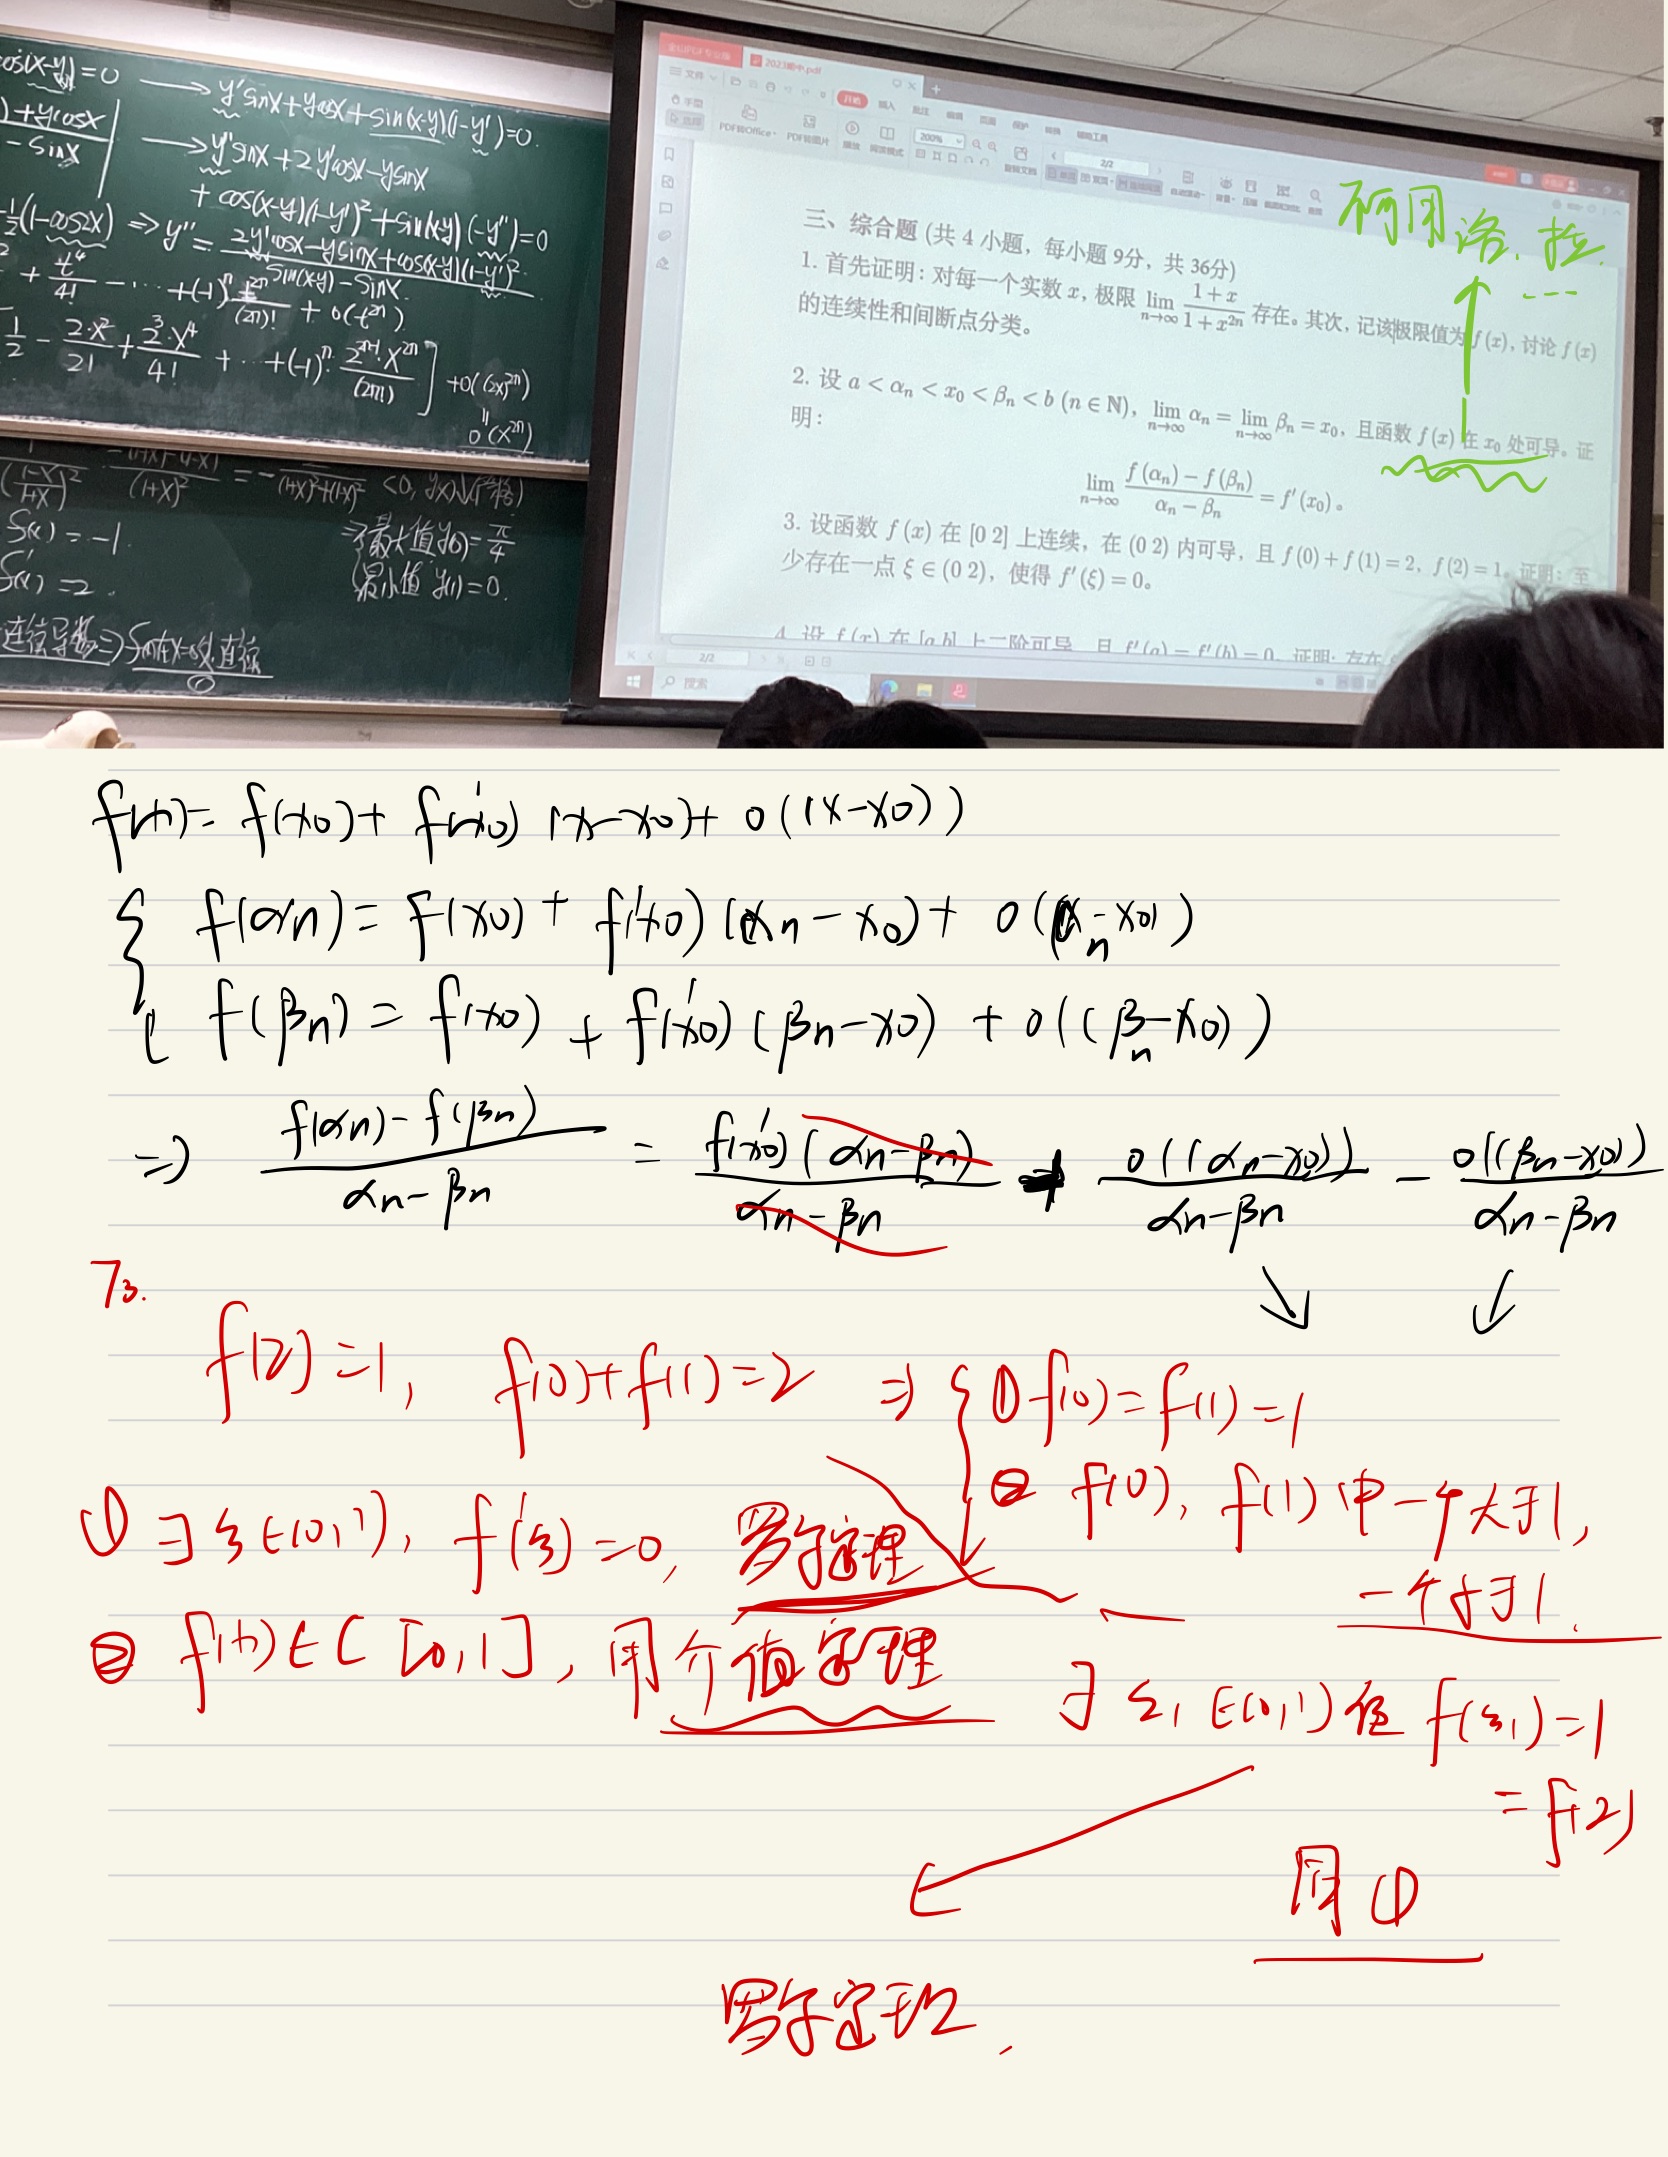 cos(x-y)=0 → y'sinx+ycosx+sin(x-y)(1-y')=0.
)+ycosx
-sinx
→ y''sinx+2y'cosx-ysinx
+cos(x-y)(1-y')²+sin(x-y)(-y'')=0
-½(1-cos2x) ⇒ y''= 2y'cosx-ysinx+cos(x-y)(1-y')²
sin(x-y)-sinx.
+ t⁴/4! - ··· +(-1)ⁿ t²ⁿ/(2n)! + o(t²ⁿ)
1/2 - 2·x²/2! + 2³·x⁴/4! + ··· +(-1)ⁿ· 2²ⁿ⁻¹·x²ⁿ/(2n)! ] +o((2x)²ⁿ)
o(x²ⁿ)
<0, y(x)↘(严格)
S(x)=-1.
S'(x)=2.
⇒ {最大值y(0)=π/4
最小值 y(1)=0.
连续导数⇒
2023期中.pdf
文件
开始 插入 批注 编辑 页面 保护 转换
手型
选择
PDF转Office PDF转图片 播放 阅读模式
200%
2/2
三、综合题 (共 4 小题，每小题 9分，共 36分)
1. 首先证明：对每一个实数 x, 极限 lim n→∞ (1+x)/(1+x²ⁿ) 存在。其次，记该极限值为 f(x), 讨论 f(x)
的连续性和间断点分类。
2. 设 a < αₙ < x₀ < βₙ < b (n ∈ N), lim n→∞ αₙ = lim n→∞ βₙ = x₀, 且函数 f(x) 在 x₀ 处可导。证
明：
lim n→∞ (f(αₙ) - f(βₙ))/(αₙ - βₙ) = f'(x₀)。
3. 设函数 f(x) 在 [0 2] 上连续，在 (0 2) 内可导，且 f(0)+f(1)=2, f(2)=1。证明：至
少存在一点 ξ ∈ (0 2), 使得 f'(ξ)=0。
4. 设 f(x) 在 [a b] 上二阶可导，且 f'(a) = f'(b) = 0. 证明：存在
2/2
搜索
用洛.拉.
...
f(x)= f(x0)+ f'(x0) (x-x0)+ o((x-x0))
{ f(αn)= f(x0)+ f'(x0)(αn-x0)+ o(αn-x0)
f(βn)= f(x0) + f'(x0)(βn-x0) + o((βn-x0))
⇒ (f(αn)-f(βn))/(αn-βn) = f'(x0)(αn-βn)/(αn-βn) + o((αn-x0))/(αn-βn) - o((βn-x0))/(αn-βn)
T3.
f(2)=1, f(0)+f(1)=2 ⇒ { ① f(0)=f(1)=1
② f(0), f(1)中一个大于1,
一个小于1.
① ∃ξ∈(0,1), f'(ξ)=0, 罗尔定理
② f(x)∈C[0,1], 用介值定理
∃ ξ1∈(0,1)使 f(ξ1)=1
=f(2)
同①
罗尔定理.